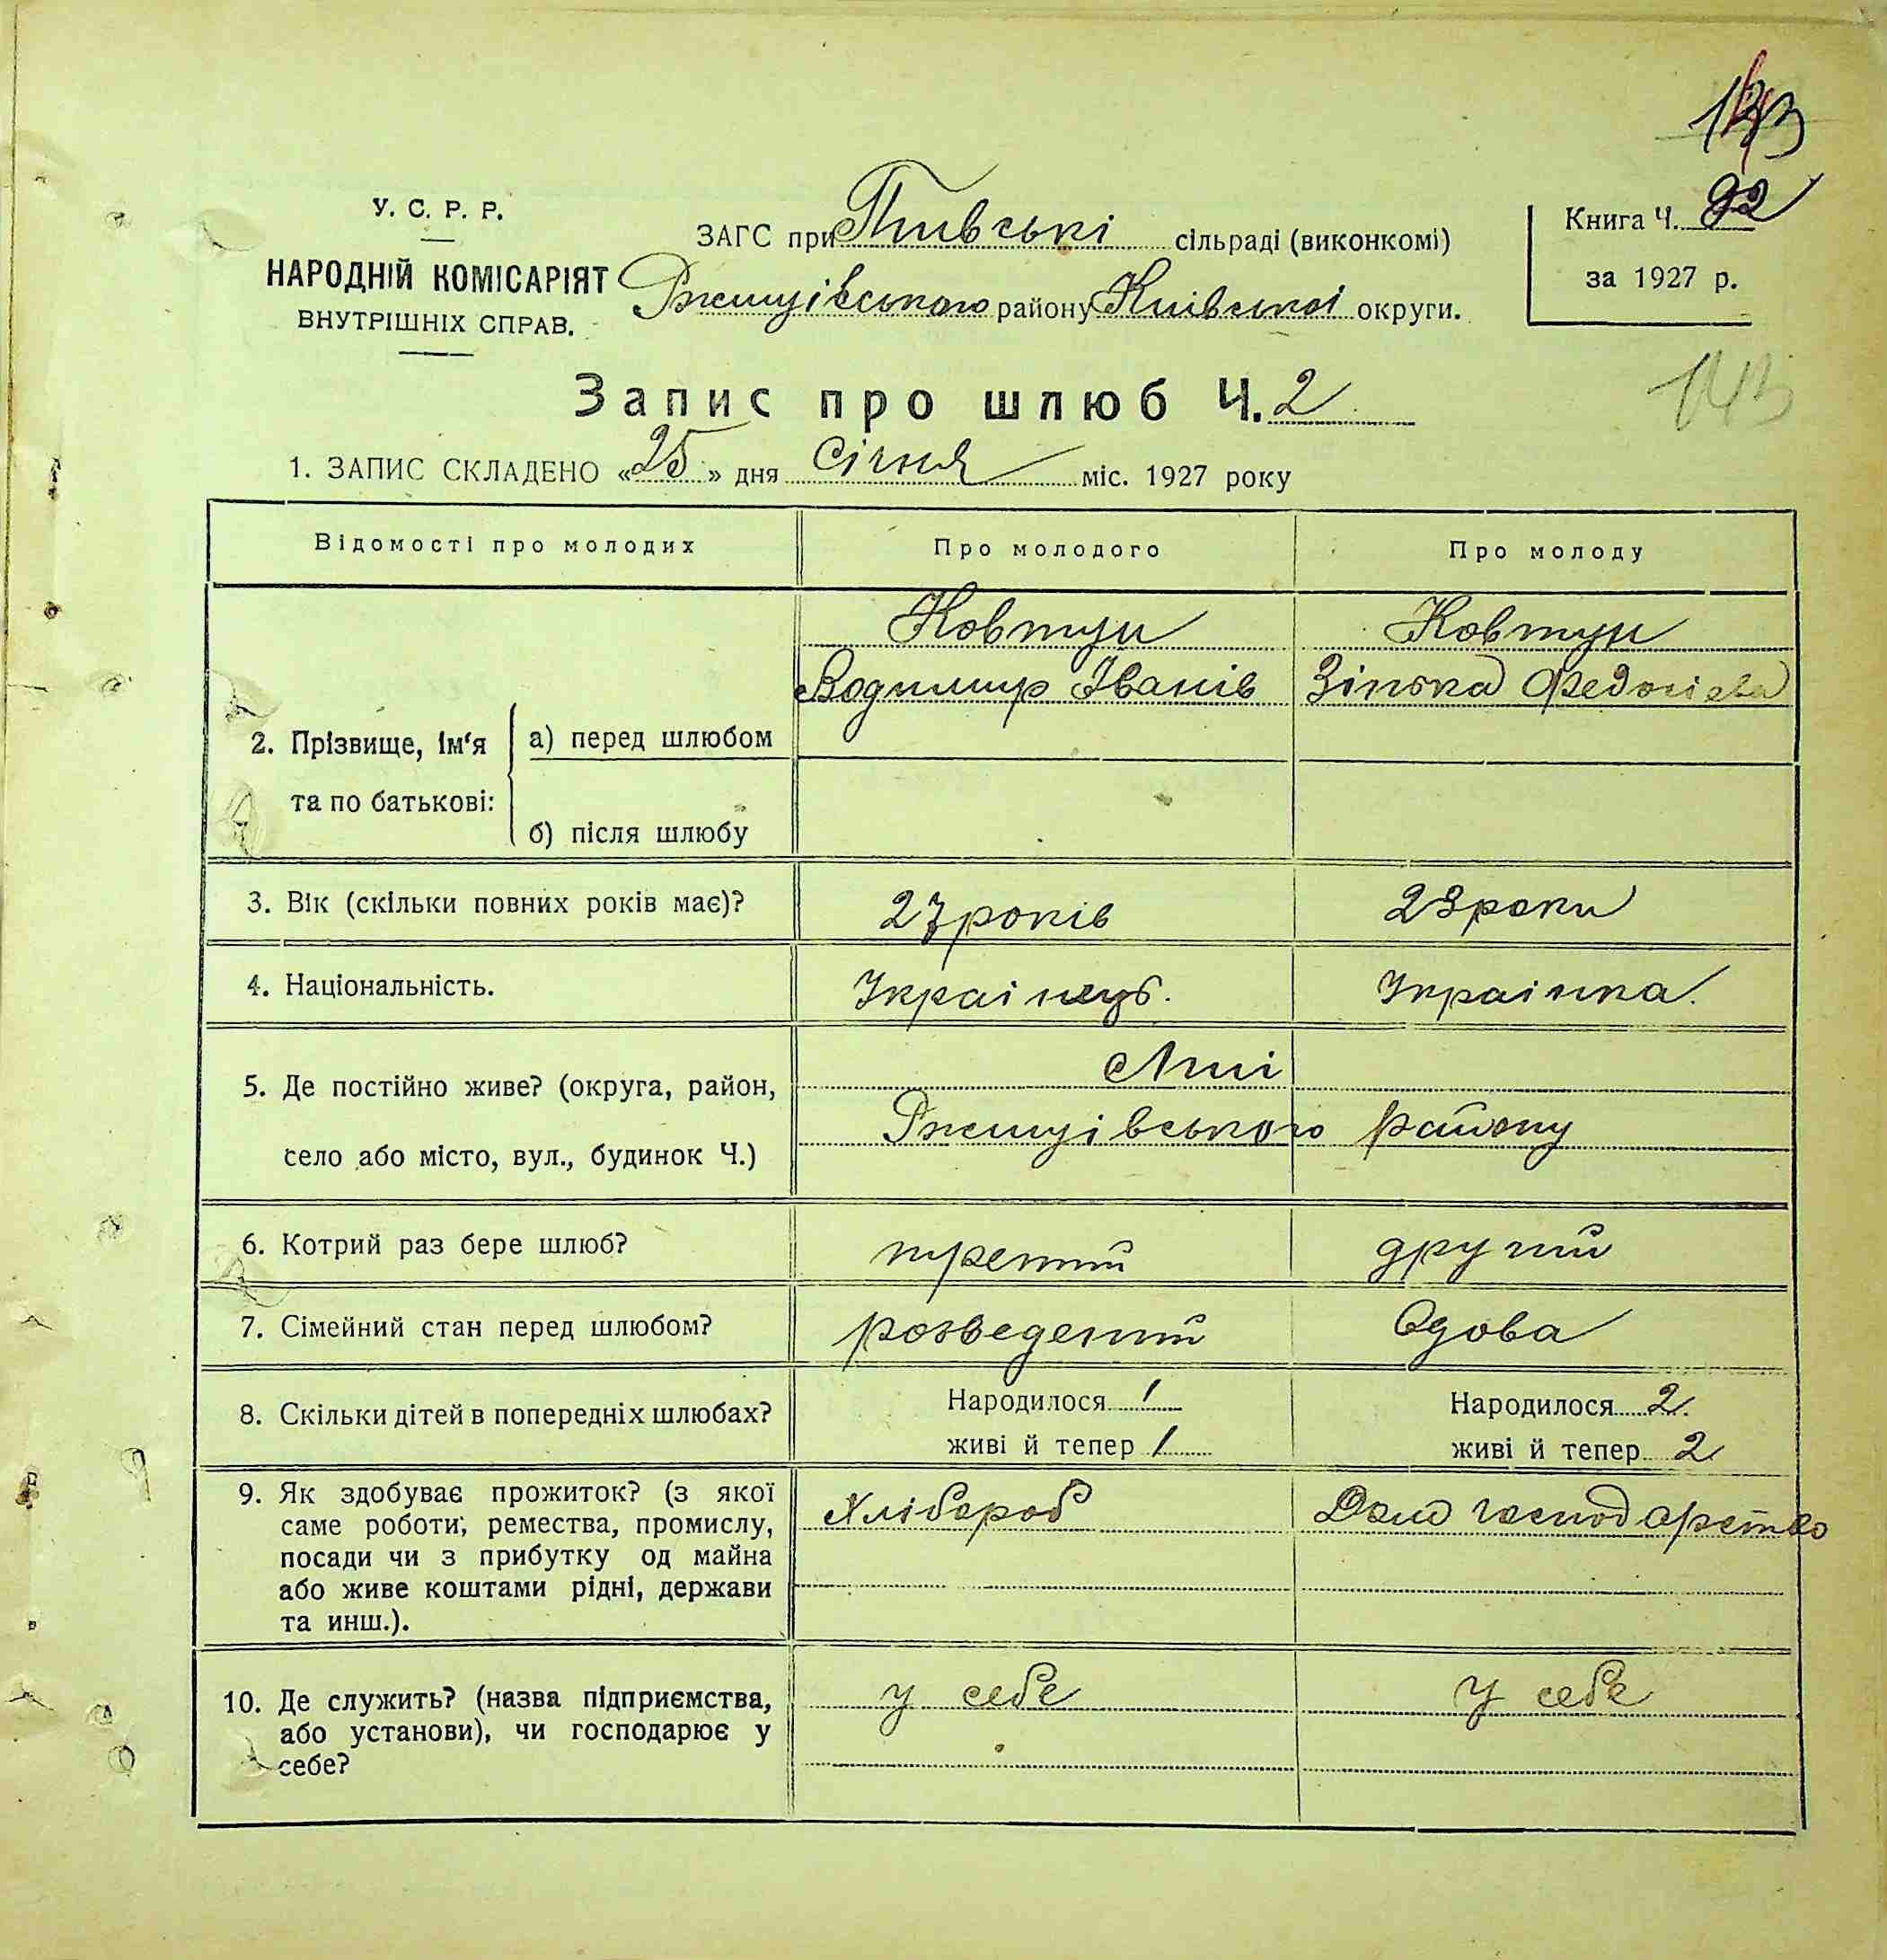 143
У. С. Р. Р.
НАРОДНІЙ КОМІСАРІЯТ
ВНУТРІШНІХ СПРАВ.
ЗАГС при сільраді (виконкомі)
Ржищівського району Київської округи.
Книга Ч. 92
за 1927 р.
143
Запис про шлюб Ч. 2
1. ЗАПИС СКЛАДЕНО «25» дня Січня міс. 1927 року
Відомості про молодих
Про молодого
Про молоду
2. Прізвище, ім'я та по батькові:
а) перед шлюбом
Ковтун
Водимир Іванів
Ковтун
Зінька Федосієва
б) після шлюбу
3. Вік (скільки повних років має)?
27 років
23 роки
4. Національність.
Украінець.
Украінка.
5. Де постійно живе? (округа, район,
село або місто, вул., будинок Ч.)
Ржищівського району
6. Котрий раз бере шлюб?
третій
другий
7. Сімейний стан перед шлюбом?
розведений
Вдова
8. Скільки дітей в попередніх шлюбах?
Народилося 1
живі й тепер 1
Народилося 2.
живі й тепер 2
9. Як здобуває прожиток? (з якої
саме роботи, ремества, промислу,
посади чи з прибутку од майна
або живе коштами рідні, держави
та инш.).
Хлібороб
Дом господарство
10. Де служить? (назва підприємства,
або установи), чи господарює у
себе?
у себе
у себе